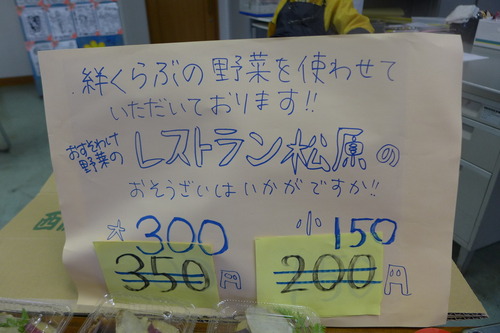 絆くらぶの野菜を使わせて
いただいております!!
おすそわけ
野菜の
レストラン松原の
おそうざいはいかがですか!!
大300 小150
350円 200円